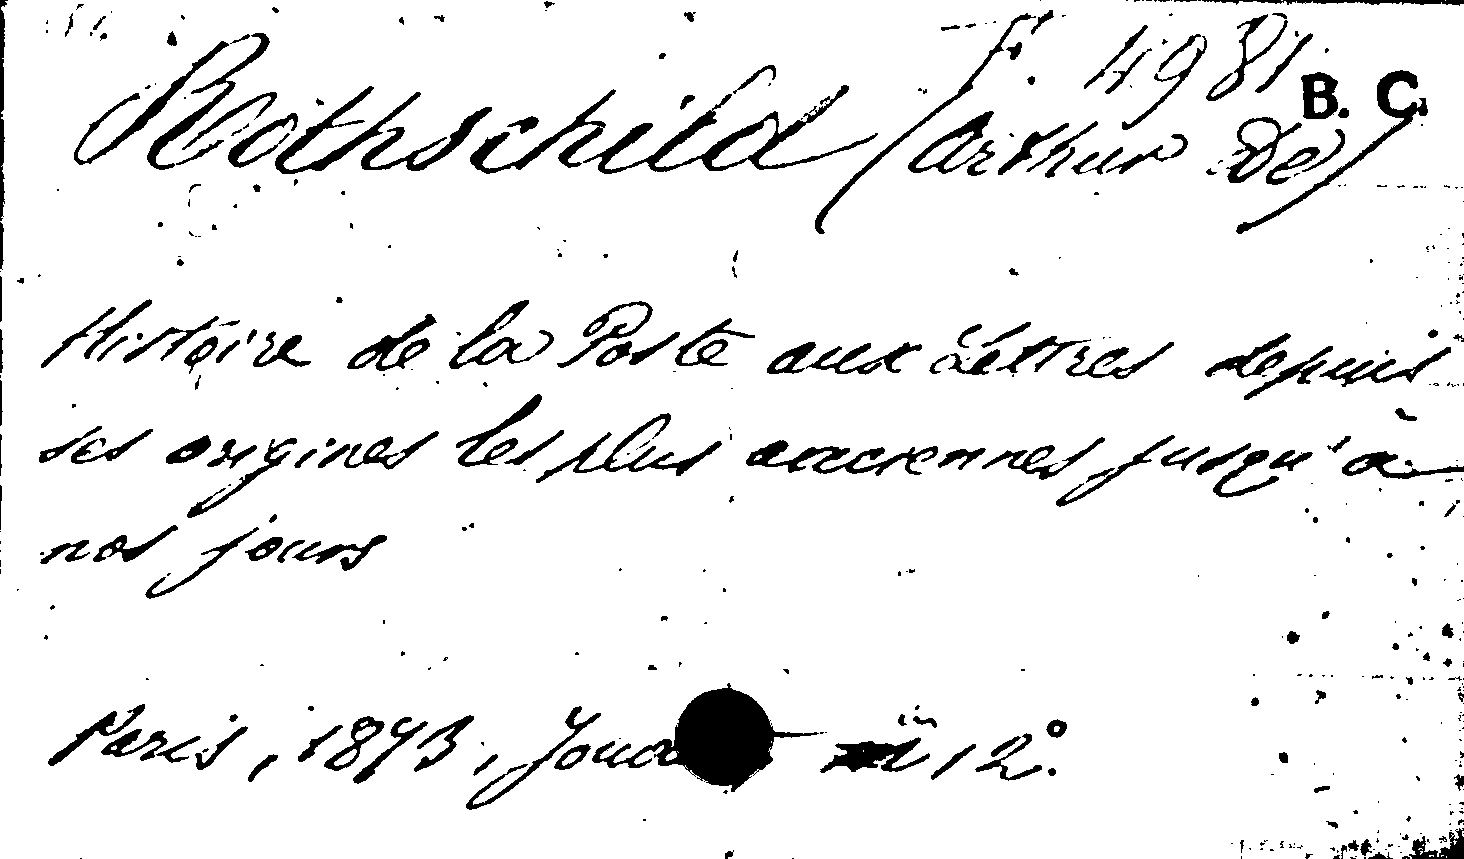 F. 4981
B. C.
Rothschild (Arthur De)
Histoire de la Poste aux Lettres depuis
ses origines les plus anciennes jusqu'à
nos jours
Paris, 1873, in 12°.